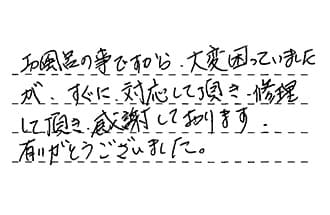 お風呂の事ですから、大変困っていました
が、すぐに対応して頂き、修理
して頂き、感謝しております。
有りがとうございました。